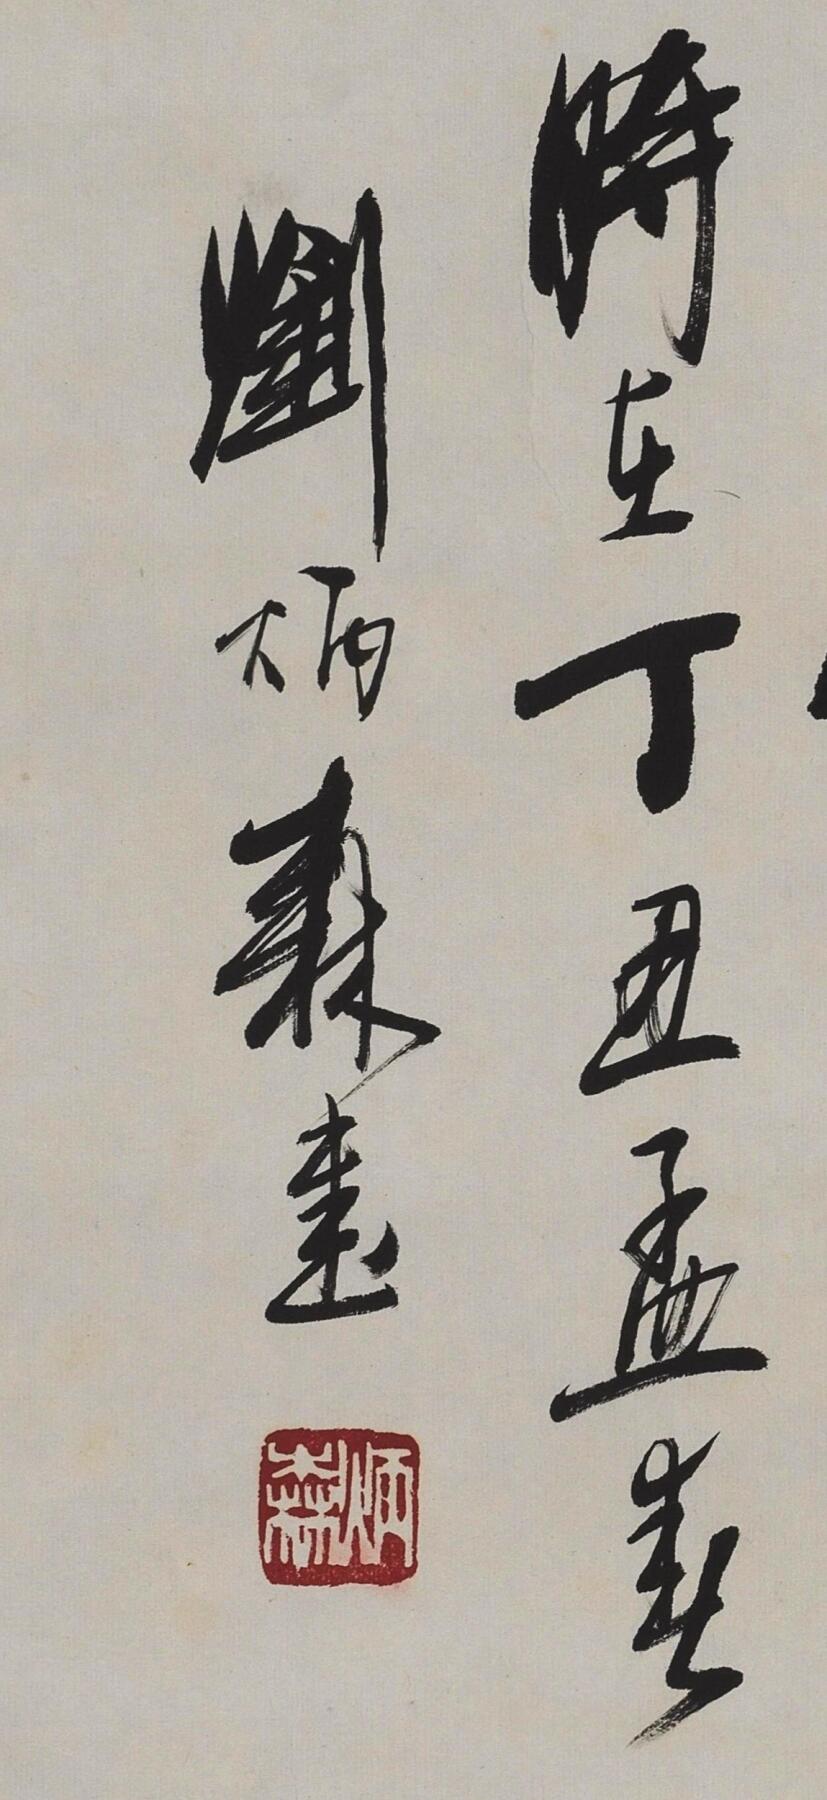 時在丁丑孟春
劉炳森書
炳森